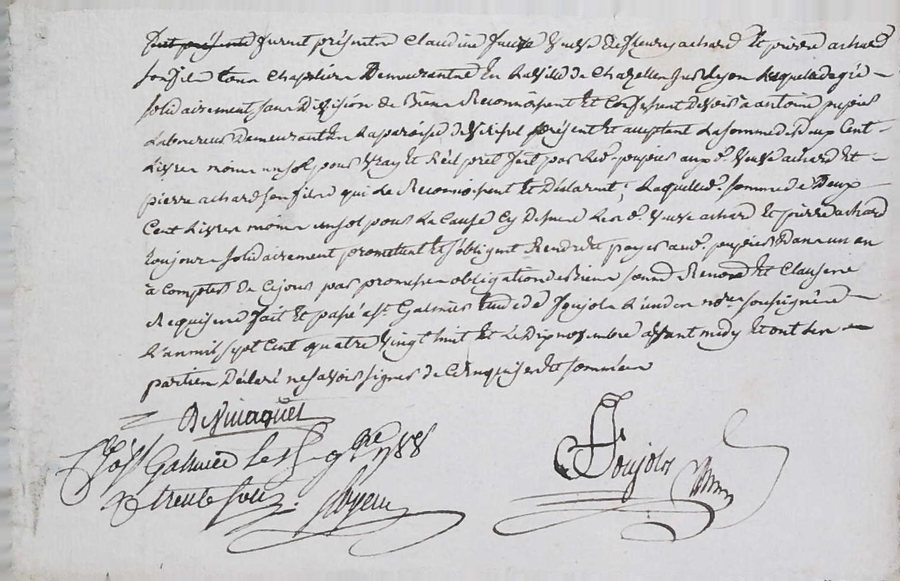 furent présents Claudine Veuve de fleury achard Et pierre achard
son fils Chapelier Demeurants En la ville de Chazelles sur lyon lesquels de gré
solidairement sans Division de Biens Reconnoissent Et Confessent devoir a antoine pupier
Laboureur Demeurant En la paroisse de présent Et acceptant La somme de deux Cent
Livres moins un sol pour vray Et Réel prêt fait par led. pupier aux d. veuve achard Et
pierre achard son fils qui Le Reconnoissent Et Déclarent, Laquelle d. somme de Deux
Cent Livres moins un sol pour La Cause Cy Dessus Les d. veuve achard Et pierre achard
toujours solidairement promettent Et s'obligent Rendre Et payer aud. pupier Dans un an
à Compter de Ce jour par promesse obligation de Biens soumis Renon. Et Clauses
Requises fait Et passé a st. Galmier Etude de Poujols L'un des no.res soussignés
L'an mil sept Cent quatre vingt huit Et Le Dix novembre avant midy Et ont Les
parties Déclaré ne savoir signer de Ce Enquises Et sommées
Devinaquet
st. Galmier le 9bre 1788
R trente sols
Poujols